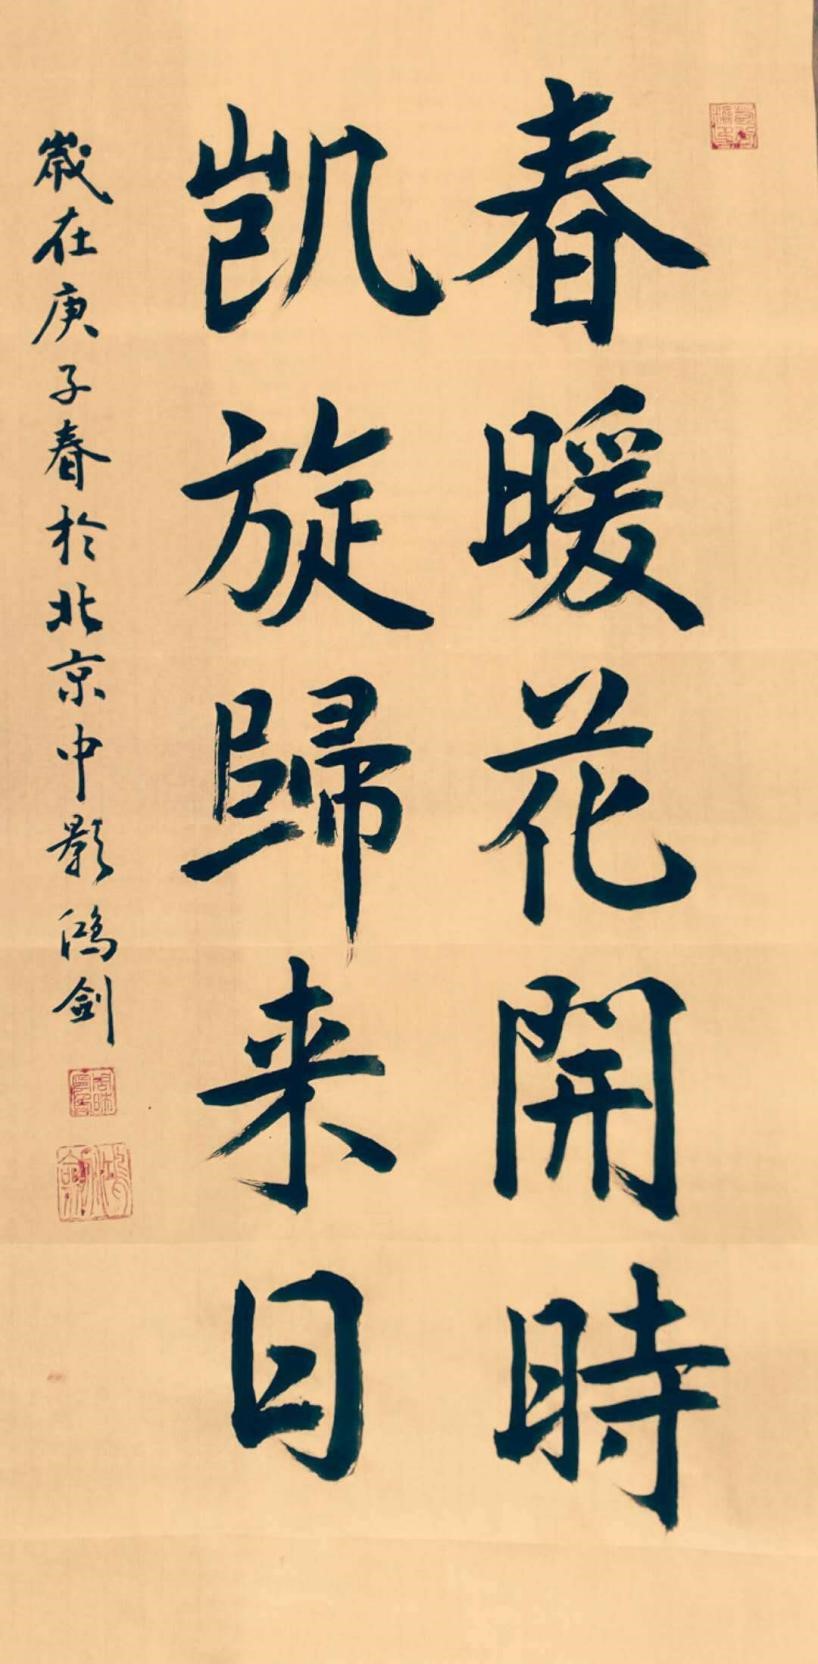 春暖花開時
凱旋歸来日
歲在庚子春於北京中影鴻劍